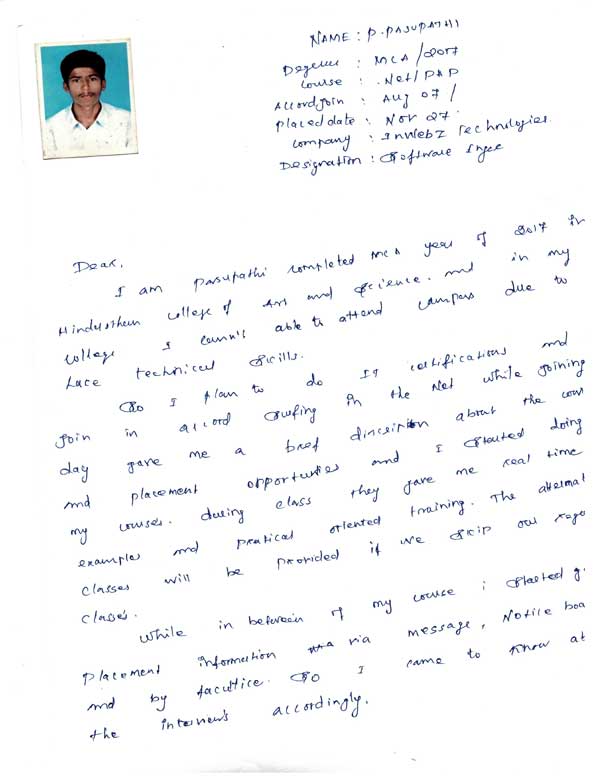 NAME : P. PASUPATHI
Degeree : MCA / 2017
Course : .Net / PHP
Accord join : Aug 07 /
Placed date : Nov 27
Company : InWebz Technologies
Designation : Software
Dear,
I am Pasupathi completed MCA year of 2017 in
Hindusthan college of Art and Science. and in my
college I able to attend campus due to
technical skills.
So I plan to do IT certifications and
join in accord surfing in the Net while joining
day gave me a brief about the
and placement opportunties and I started doing
my courses. during class they gave me real time
examples and pratical oriented training. The
classes will be provided if we skip our
classes.
while in between of my course i started
placement information via message, Notice boa
and by facultice. So I came to know
the interviews accordingly.